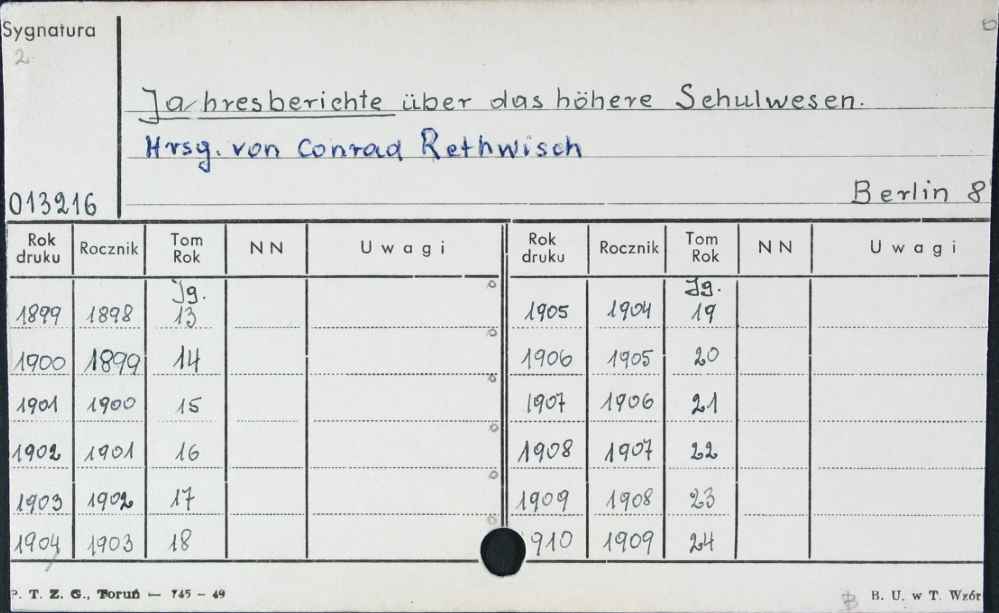 Sygnatura
2
Jahresberichte über das höhere Schulwesen.
Hrsg. von Conrad Rethwisch
013216
Berlin 8°
Rok druku Rocznik Tom Rok NN Uwagi Rok druku Rocznik Tom Rok NN Uwagi
Jg. Jg.
1899 1898 13 1905 1904 19
1900 1899 14 1906 1905 20
1901 1900 15 1907 1906 21
1902 1901 16 1908 1907 22
1903 1902 17 1909 1908 23
1904 1903 18 1910 1909 24
P. T. Z. G., Toruń — 745 - 49
B. U. w T. Wzór